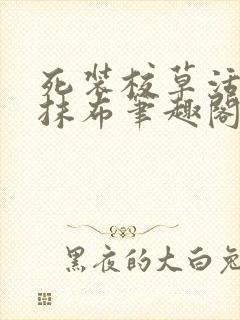 死装校草活
抹布笔趣阁
黑夜的大白兔